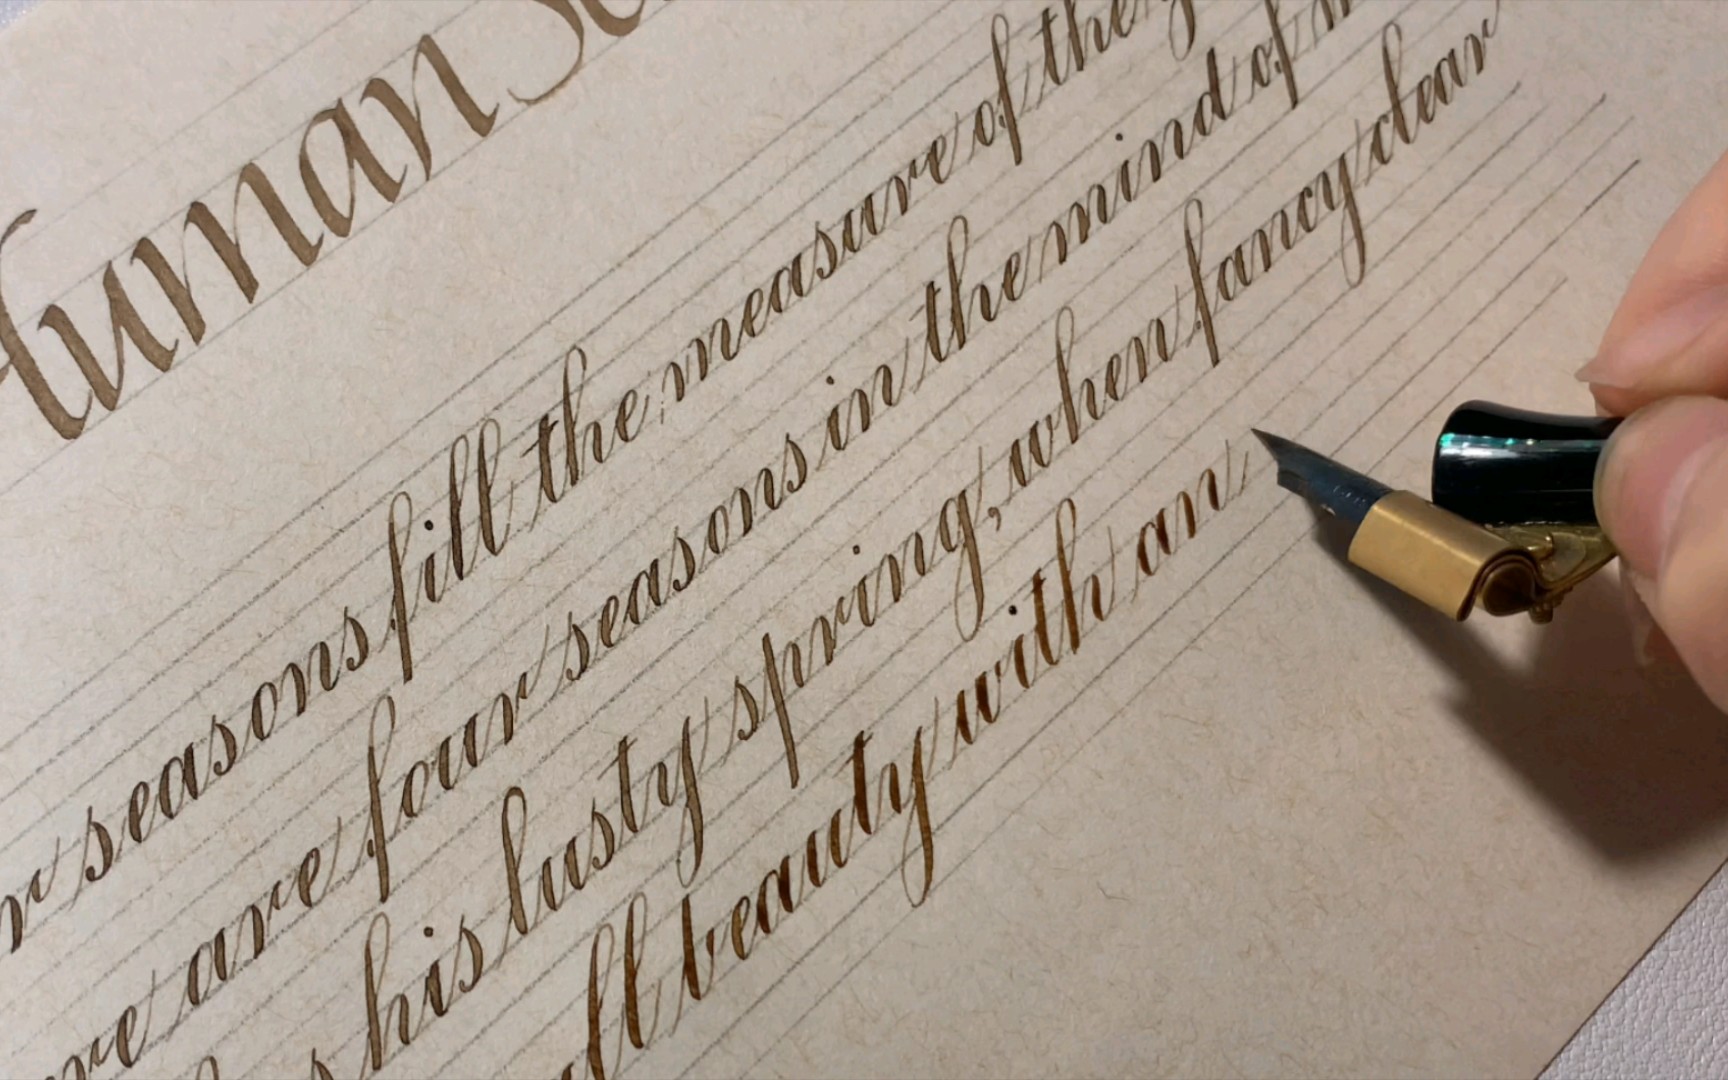 Human
seasons fill the measure of the
are four seasons in the mind of
his lusty spring, when fancy clear
all beauty with an